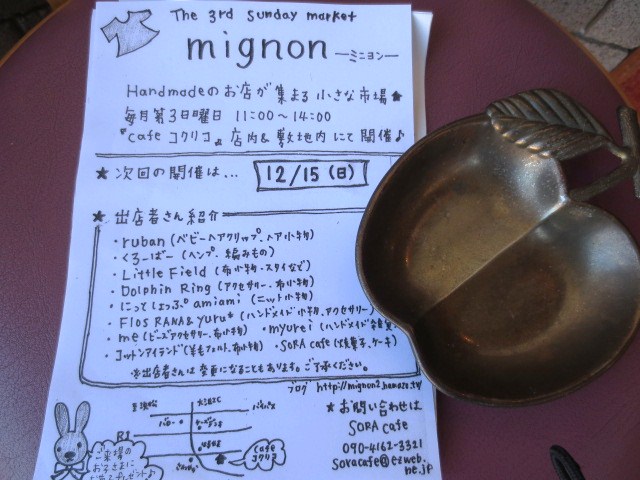 The 3rd Sunday market
mignon ―ミニヨン―
Handmadeのお店が集まる小さな市場★
毎月第3日曜日 11:00〜14:00
『cafe コクリコ』店内&敷地内にて開催♪
★次回の開催は... 12/15(日)
★出店者さん紹介
・ruban(ベビーヘアクリップ、ヘア小物)
・くろーばー(ヘンプ、編みもの)
・Little Field(布小物・スタイなど)
・Dolphin Ring(アクセサリー、布小物)
・にっとしょっぷ amiami(ニット小物)
・Flos RANA&yuru*(ハンドメイド小物、アクセサリー)
・me(ビーズアクセサリー、布小物) ・myurei(ハンドメイド雑貨
・コットンアイランド(羊毛フェルト、布小物) ・SORA cafe(焼菓子、ケーキ)
※出店者さんは変更になることもあります。ご了承ください。
ブログ
★お問い合わせは
SORA cafe
090-4162-3321
soracafe@ezweb.
ne.jp
R1
cafe
コクリコ
ご来場の
お子さまに